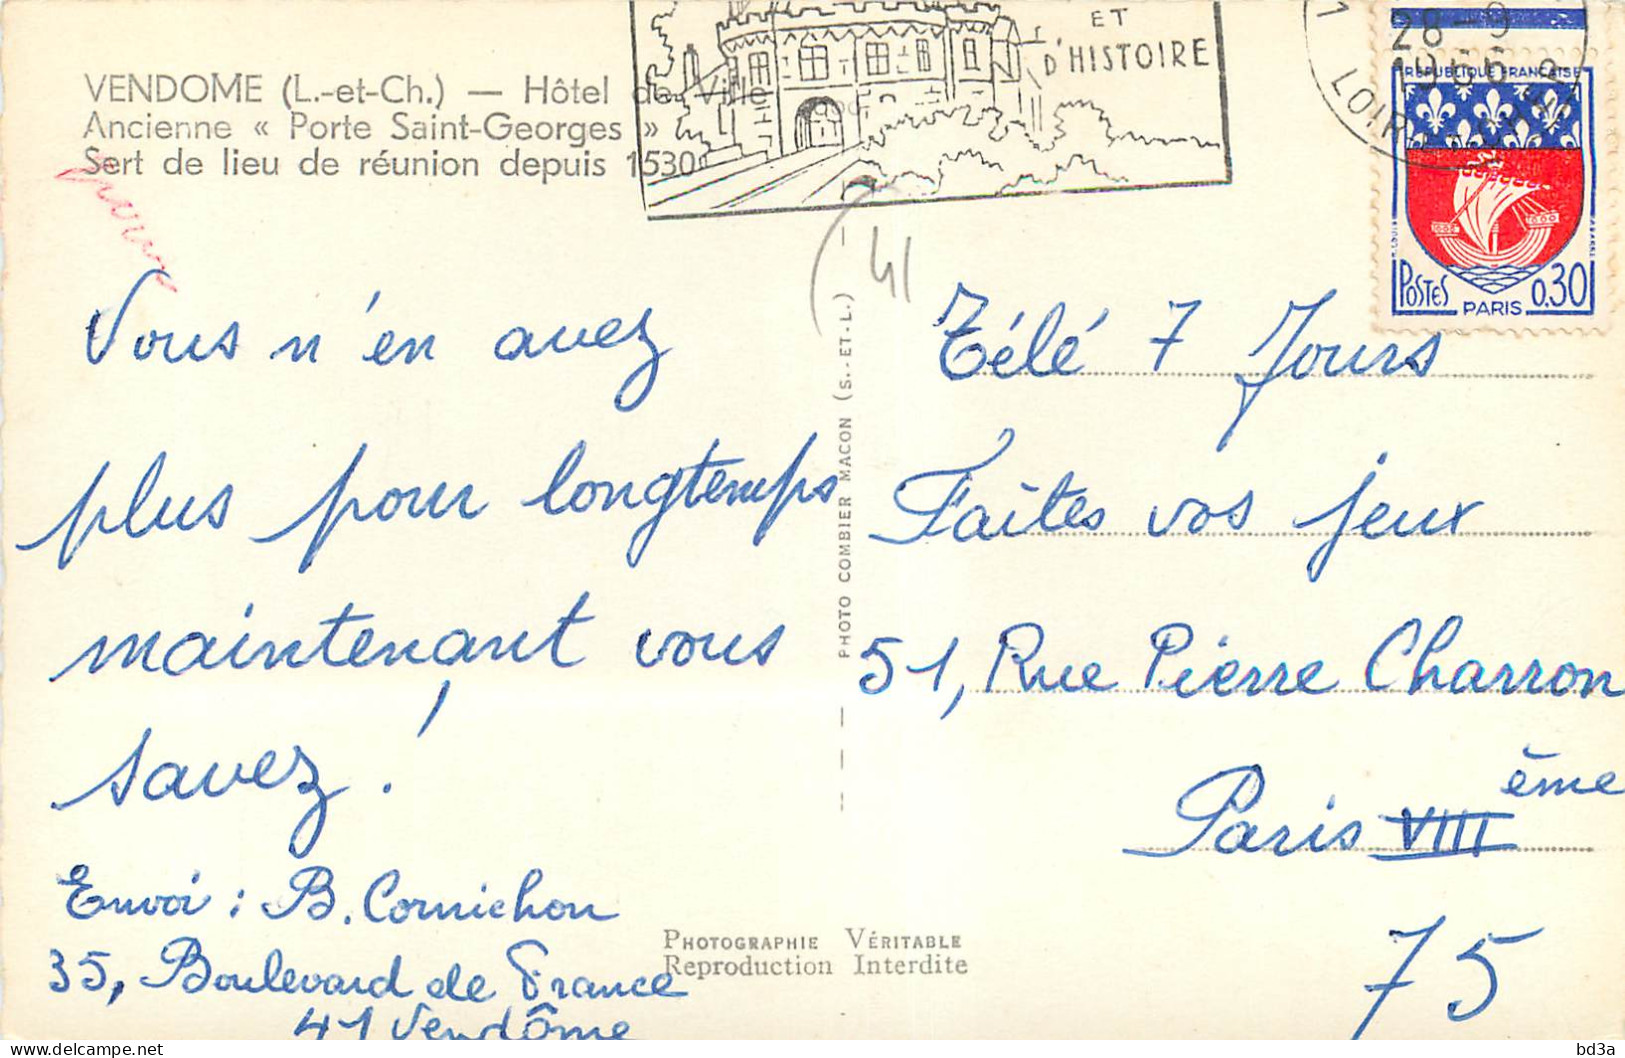 VENDOME (L.-et-Ch.) — Hôtel de Ville
Ancienne « Porte Saint-Georges »
Sert de lieu de réunion depuis 1530
ET
D'HISTOIRE
28-9
1966
LOIR-ET-CHER
RÉPUBLIQUE FRANÇAISE
POSTES
0.30
PARIS
41
Vous n'en avez
plus pour longtemps
maintenant, vous
savez !
Envoi : B. Cornichon
35, Boulevard de France
41 Vendôme
PHOTO COMBIER MACON (S.-ET-L.)
Télé 7 Jours
Faites vos jeux
51, Rue Pierre Charron
Paris VIII ème
75
PHOTOGRAPHIE VÉRITABLE
Reproduction Interdite
bd3a